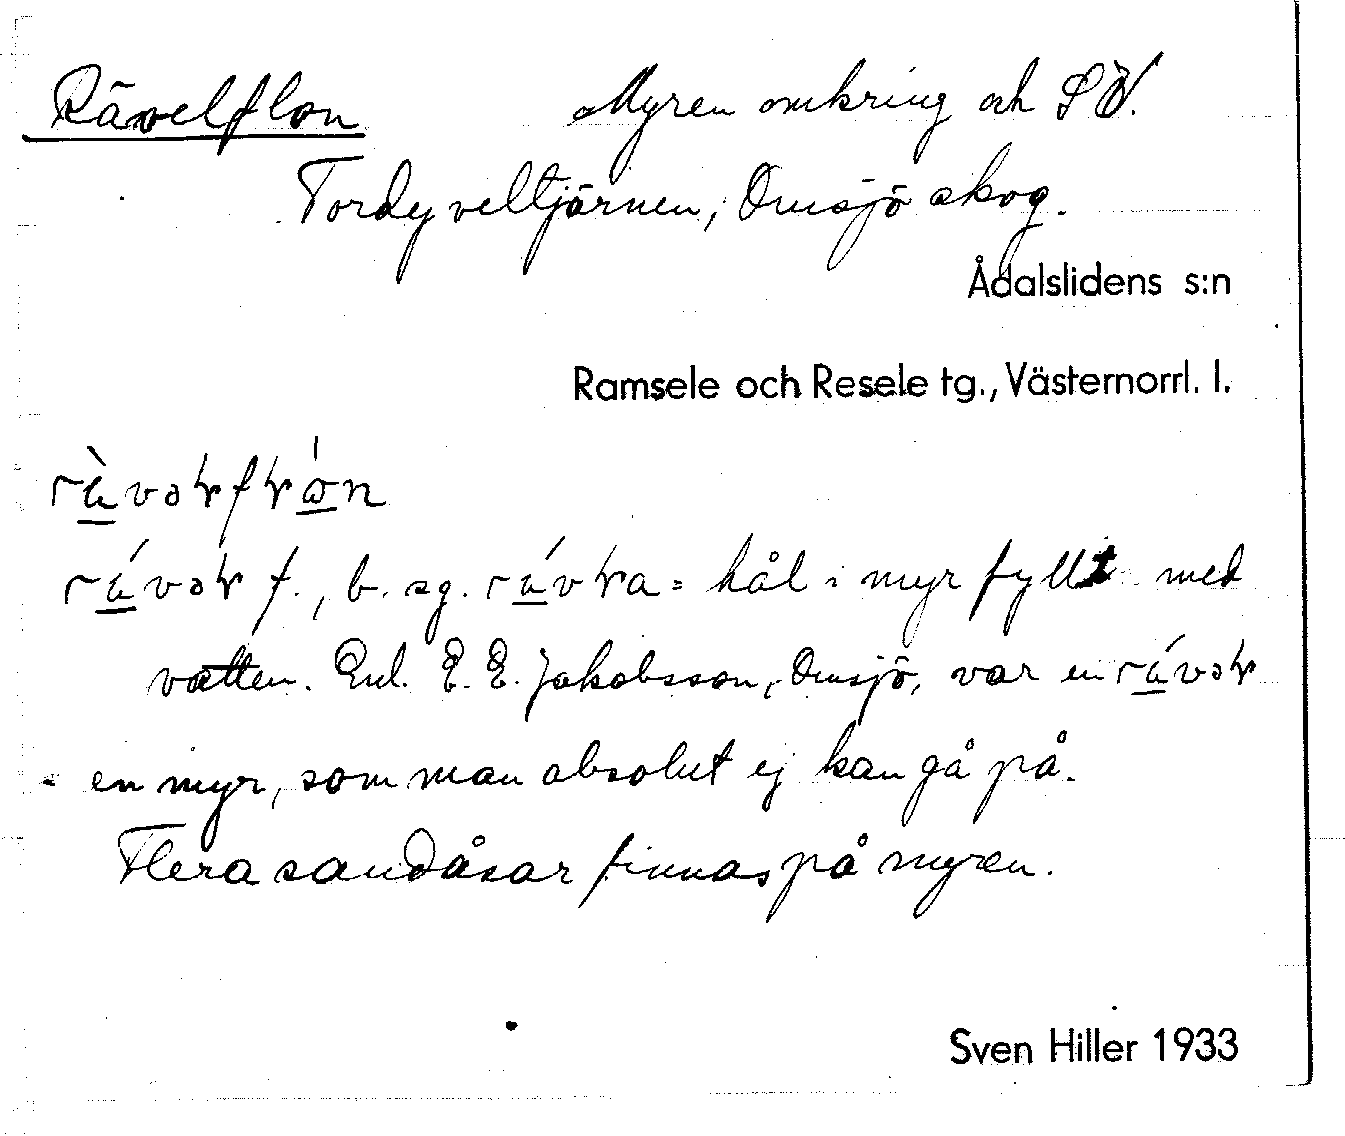 Rävelflon Myren omkring och SÖ.
Tordyveltjärnen, Omsjö skog.
Ådalslidens s:n
Ramsele och Resele tg., Västernorrl. l.
f., b. sg. = hål i myr fyllt med
vatten. Enl. E. E. Jakobsson, Omsjö, var en
en myr, som man absolut ej kan gå på.
Flera sandåsar finnas på myren.
Sven Hiller 1933